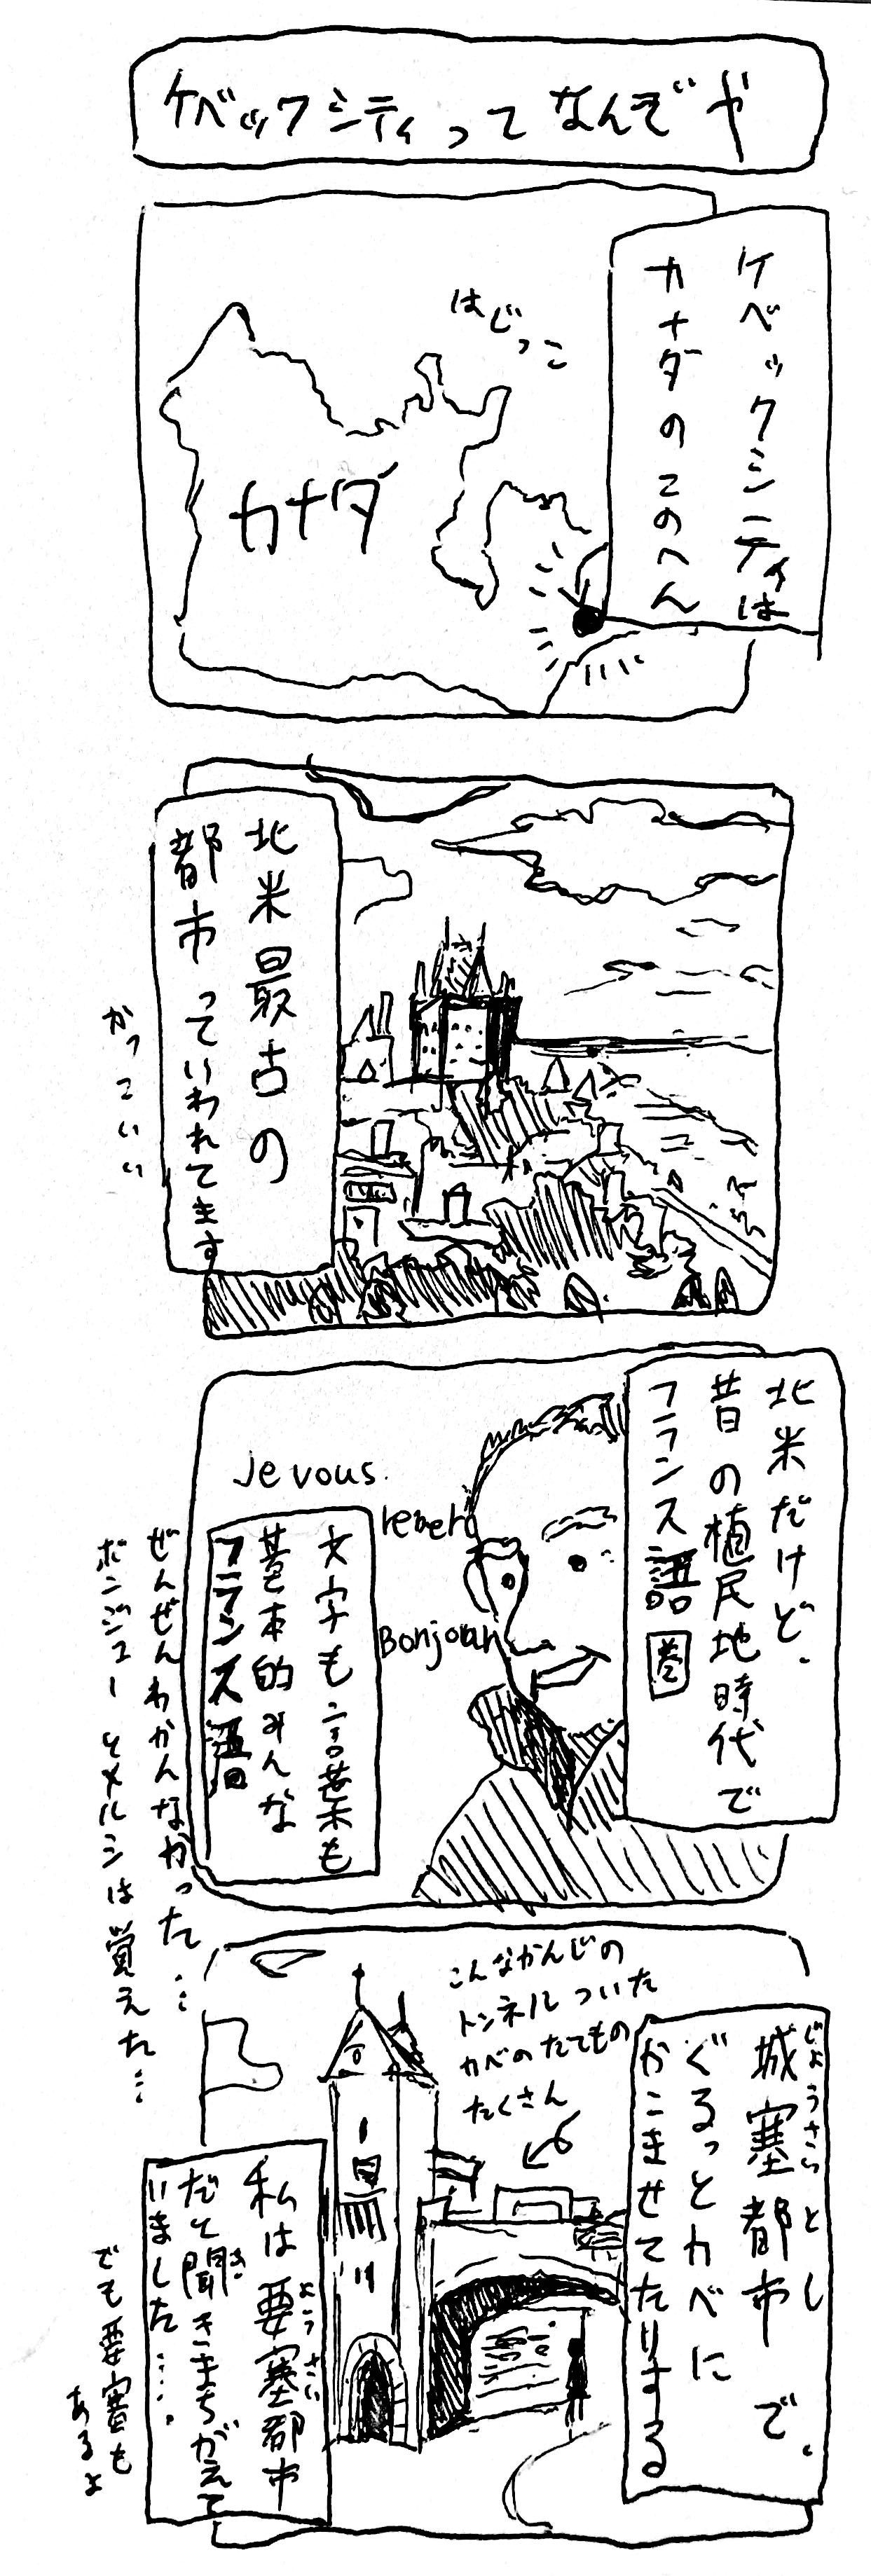 ケベックシティってなんぞや
ケベックシティは
カナダのこのへん
はじっこ
カナダ
北米最古の
都市っていわれてます
かっこいい
北米だけど、
昔の植民地時代で
フランス語圏
Je vous
Bonjour
文字も言葉も
基本的みんな
フランス語
ぜんぜんわかんなかった…
ボンジューとメルシは覚えた…
城塞都市で、
じょうさいとし
ぐるっとカベに
かこませてたりする
こんなかんじの
トンネルついた
カベのたてもの
たくさん
私は要塞都市
ようさい
だと聞きまちがえて
き
いました…。
でも要塞も
あるよ